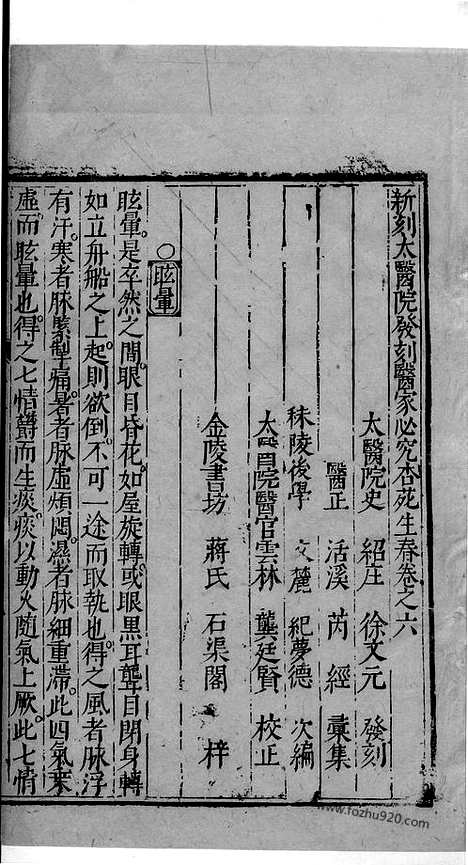 新刻太醫院發刻醫家必究杏苑生春卷之六
太醫院史 紹庄 徐文元 發刻
醫正 活溪 芮經 彙集
秣陵後學 文麓 紀夢德 次編
太醫院醫官雲林 龔廷賢 校正
金陵書坊 蔣氏 石渠閣 梓
○眩暈
眩暈是卒然之間。眼目昏花。如屋旋轉。或眼黑耳聾目閉身轉
如立舟船之上。起則欲倒。不可一途而取執也。得之風者脉浮
有汗。寒者脉緊掣痛。暑者脉虛煩悶。濕者脉細重滯。此四氣乘
虛而眩暈也。得之七情欝而生痰。痰以動火隨氣上厥。此七情
www.fozhu920.com